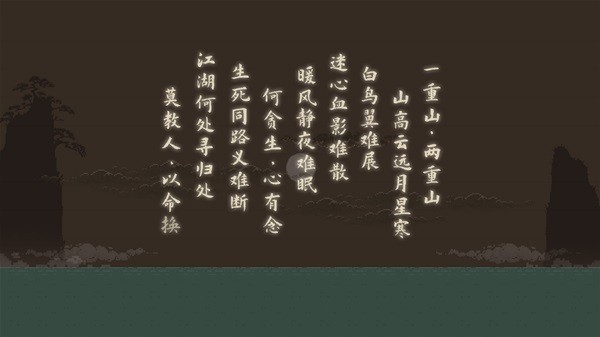 一重山·两重山
山高云远月星寒
白鸟翼难展
迷心血影难散
暖风静夜难眠
何贪生·心有念
生死同路义难断
江湖何处寻归处
莫教人·以命换